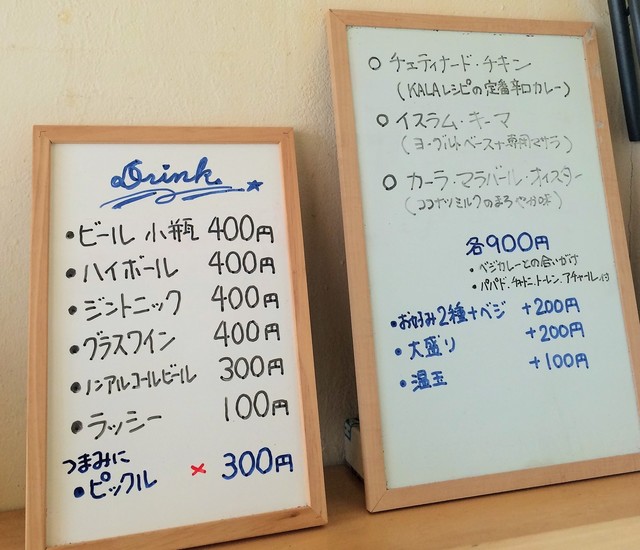 Drink
• ビール 小瓶 400円
• ハイボール 400円
• ジントニック 400円
• グラスワイン 400円
• ノンアルコールビール 300円
• ラッシー 100円
つまみに
• ピックル × 300円
○ チェティナード・チキン
(KALAレシピの定番辛口カレー)
○ イスラム・キーマ
(ヨーグルトベース+専用マサラ)
○ カーラ・マラバール・オイスター
(ココナツミルクのまろやか味)
各900円
• ベジカレーとの合いがけ
• パパド、チャトニ、トーレン、アチャール
• お好み2種+ベジ +200円
• 大盛り +200円
• 温玉 +100円